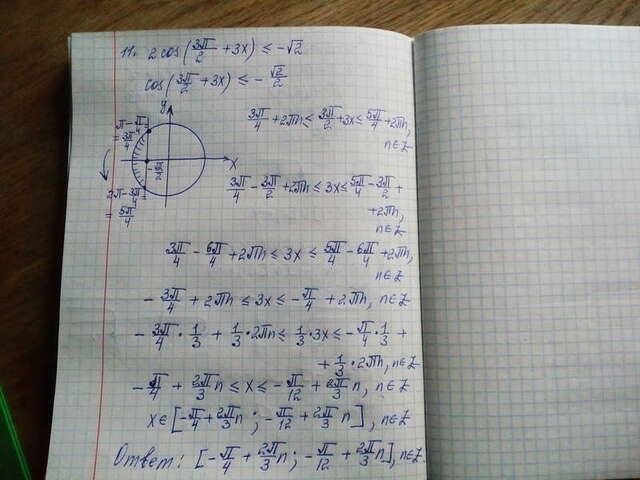 11. 2 cos(3π/2 + 3x) ≤ -√2
cos(3π/2 + 3x) ≤ -√2/2
y
π - π/4
= 3π/4
-√2/2
x
2π - 3π/4
= 5π/4
3π/4 + 2πn ≤ 3π/2 + 3x ≤ 5π/4 + 2πn,
n∈Z
3π/4 - 3π/2 + 2πn ≤ 3x ≤ 5π/4 - 3π/2 +
+ 2πn,
n∈Z
3π/4 - 6π/4 + 2πn ≤ 3x ≤ 5π/4 - 6π/4 + 2πn,
n∈Z
- 3π/4 + 2πn ≤ 3x ≤ - π/4 + 2πn, n∈Z
- 3π/4 · 1/3 + 1/3 · 2πn ≤ 1/3 · 3x ≤ - π/4 · 1/3 +
+ 1/3 · 2πn, n∈Z
- π/4 + 2π/3 n ≤ x ≤ - π/12 + 2π/3 n, n∈Z
x∈[- π/4 + 2π/3 n ; - π/12 + 2π/3 n], n∈Z
Ответ: [- π/4 + 2π/3 n; - π/12 + 2π/3 n], n∈Z.